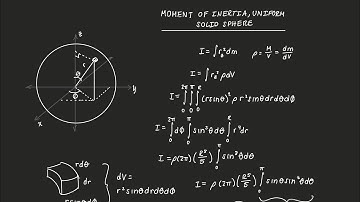 MOMENT OF INERTIA, UNIFORM
SOLID SPHERE
z
y
x
r
θ
Φ
I = ∫ r₀² dm
ρ = M/V = dm/dV
I = ∫ r₀² ρ dV
I = ∫₀^2π ∫₀^π ∫₀^R (r sinθ)² ρ r² sinθ dr dθ dΦ
I = ∫₀^2π dΦ ∫₀^π sin³θ dθ ∫₀^R r⁴ dr
I = ρ(2π)(R⁵/5) ∫₀^π sin³θ dθ
rdθ
dr
dV =
r² sinθ dr dθ dΦ
I = ρ(2π)(R⁵/5) ∫₀^π sinθ sin²θ dθ